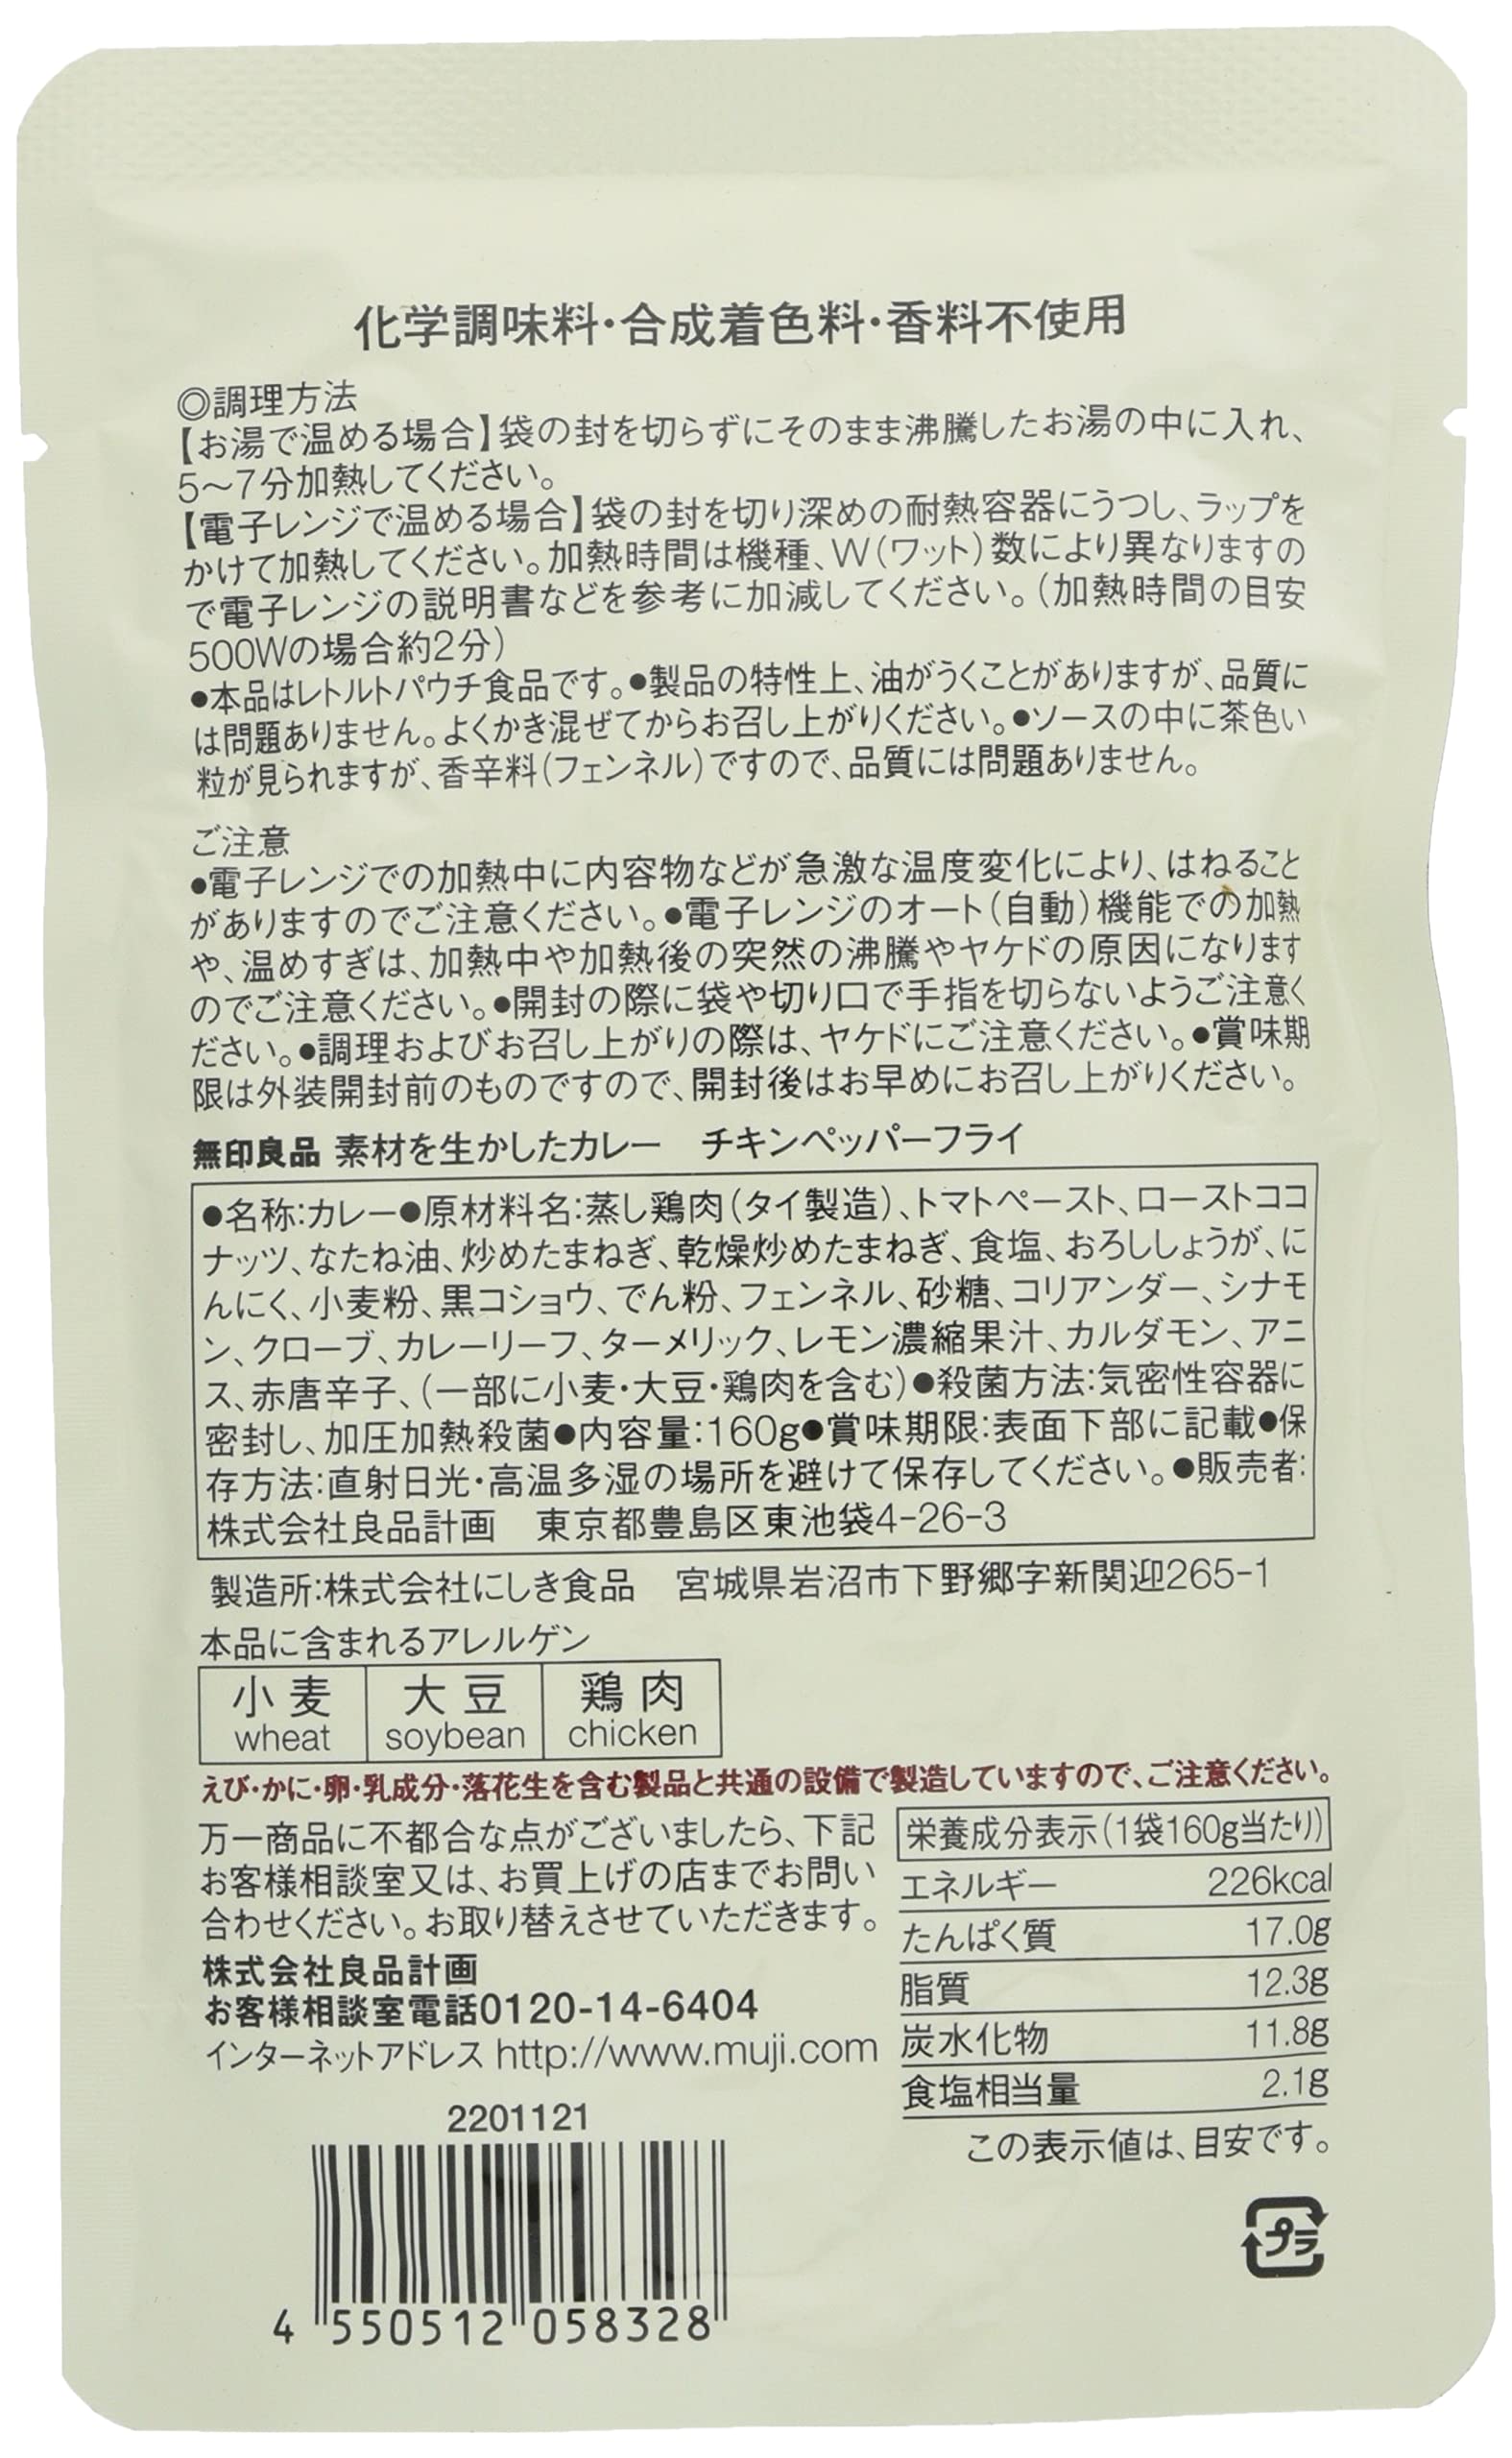 化学調味料・合成着色料・香料不使用
◎調理方法
【お湯で温める場合】袋の封を切らずにそのまま沸騰したお湯の中に入れ、
5〜7分加熱してください。
【電子レンジで温める場合】袋の封を切り深めの耐熱容器にうつし、ラップを
かけて加熱してください。加熱時間は機種、W(ワット)数により異なりますの
で電子レンジの説明書などを参考に加減してください。(加熱時間の目安
500Wの場合約2分)
●本品はレトルトパウチ食品です。●製品の特性上、油がうくことがありますが、品質に
は問題ありません。よくかき混ぜてからお召し上がりください。●ソースの中に茶色い
粒が見られますが、香辛料(フェンネル)ですので、品質には問題ありません。
ご注意
●電子レンジでの加熱中に内容物などが急激な温度変化により、はねること
がありますのでご注意ください。●電子レンジのオート(自動)機能での加熱
や、温めすぎは、加熱中や加熱後の突然の沸騰やヤケドの原因になります
のでご注意ください。●開封の際に袋や切り口で手指を切らないようご注意く
ださい。●調理およびお召し上がりの際は、ヤケドにご注意ください。●賞味期
限は外装開封前のものですので、開封後はお早めにお召し上がりください。
無印良品 素材を生かしたカレー　チキンペッパーフライ
●名称:カレー●原材料名:蒸し鶏肉(タイ製造)、トマトペースト、ローストココ
ナッツ、なたね油、炒めたまねぎ、乾燥炒めたまねぎ、食塩、おろししょうが、に
んにく、小麦粉、黒コショウ、でん粉、フェンネル、砂糖、コリアンダー、シナモ
ン、クローブ、カレーリーフ、ターメリック、レモン濃縮果汁、カルダモン、アニ
ス、赤唐辛子、(一部に小麦・大豆・鶏肉を含む)●殺菌方法:気密性容器に
密封し、加圧加熱殺菌●内容量:160g●賞味期限:表面下部に記載●保
存方法:直射日光・高温多湿の場所を避けて保存してください。●販売者:
株式会社良品計画　東京都豊島区東池袋4-26-3
製造所:株式会社にしき食品　宮城県岩沼市下野郷字新関迎265-1
本品に含まれるアレルゲン
小麦 大豆 鶏肉
wheat soybean chicken
えび・かに・卵・乳成分・落花生を含む製品と共通の設備で製造していますので、ご注意ください。
万一商品に不都合な点がございましたら、下記
お客様相談室又は、お買上げの店までお問い
合わせください。お取り替えさせていただきます。
株式会社良品計画
お客様相談室電話0120-14-6404
インターネットアドレス http://www.muji.com
栄養成分表示(1袋160g当たり)
エネルギー 226kcal
たんぱく質 17.0g
脂質 12.3g
炭水化物 11.8g
食塩相当量 2.1g
この表示値は、目安です。
2201121
4 550512 058328
プラ